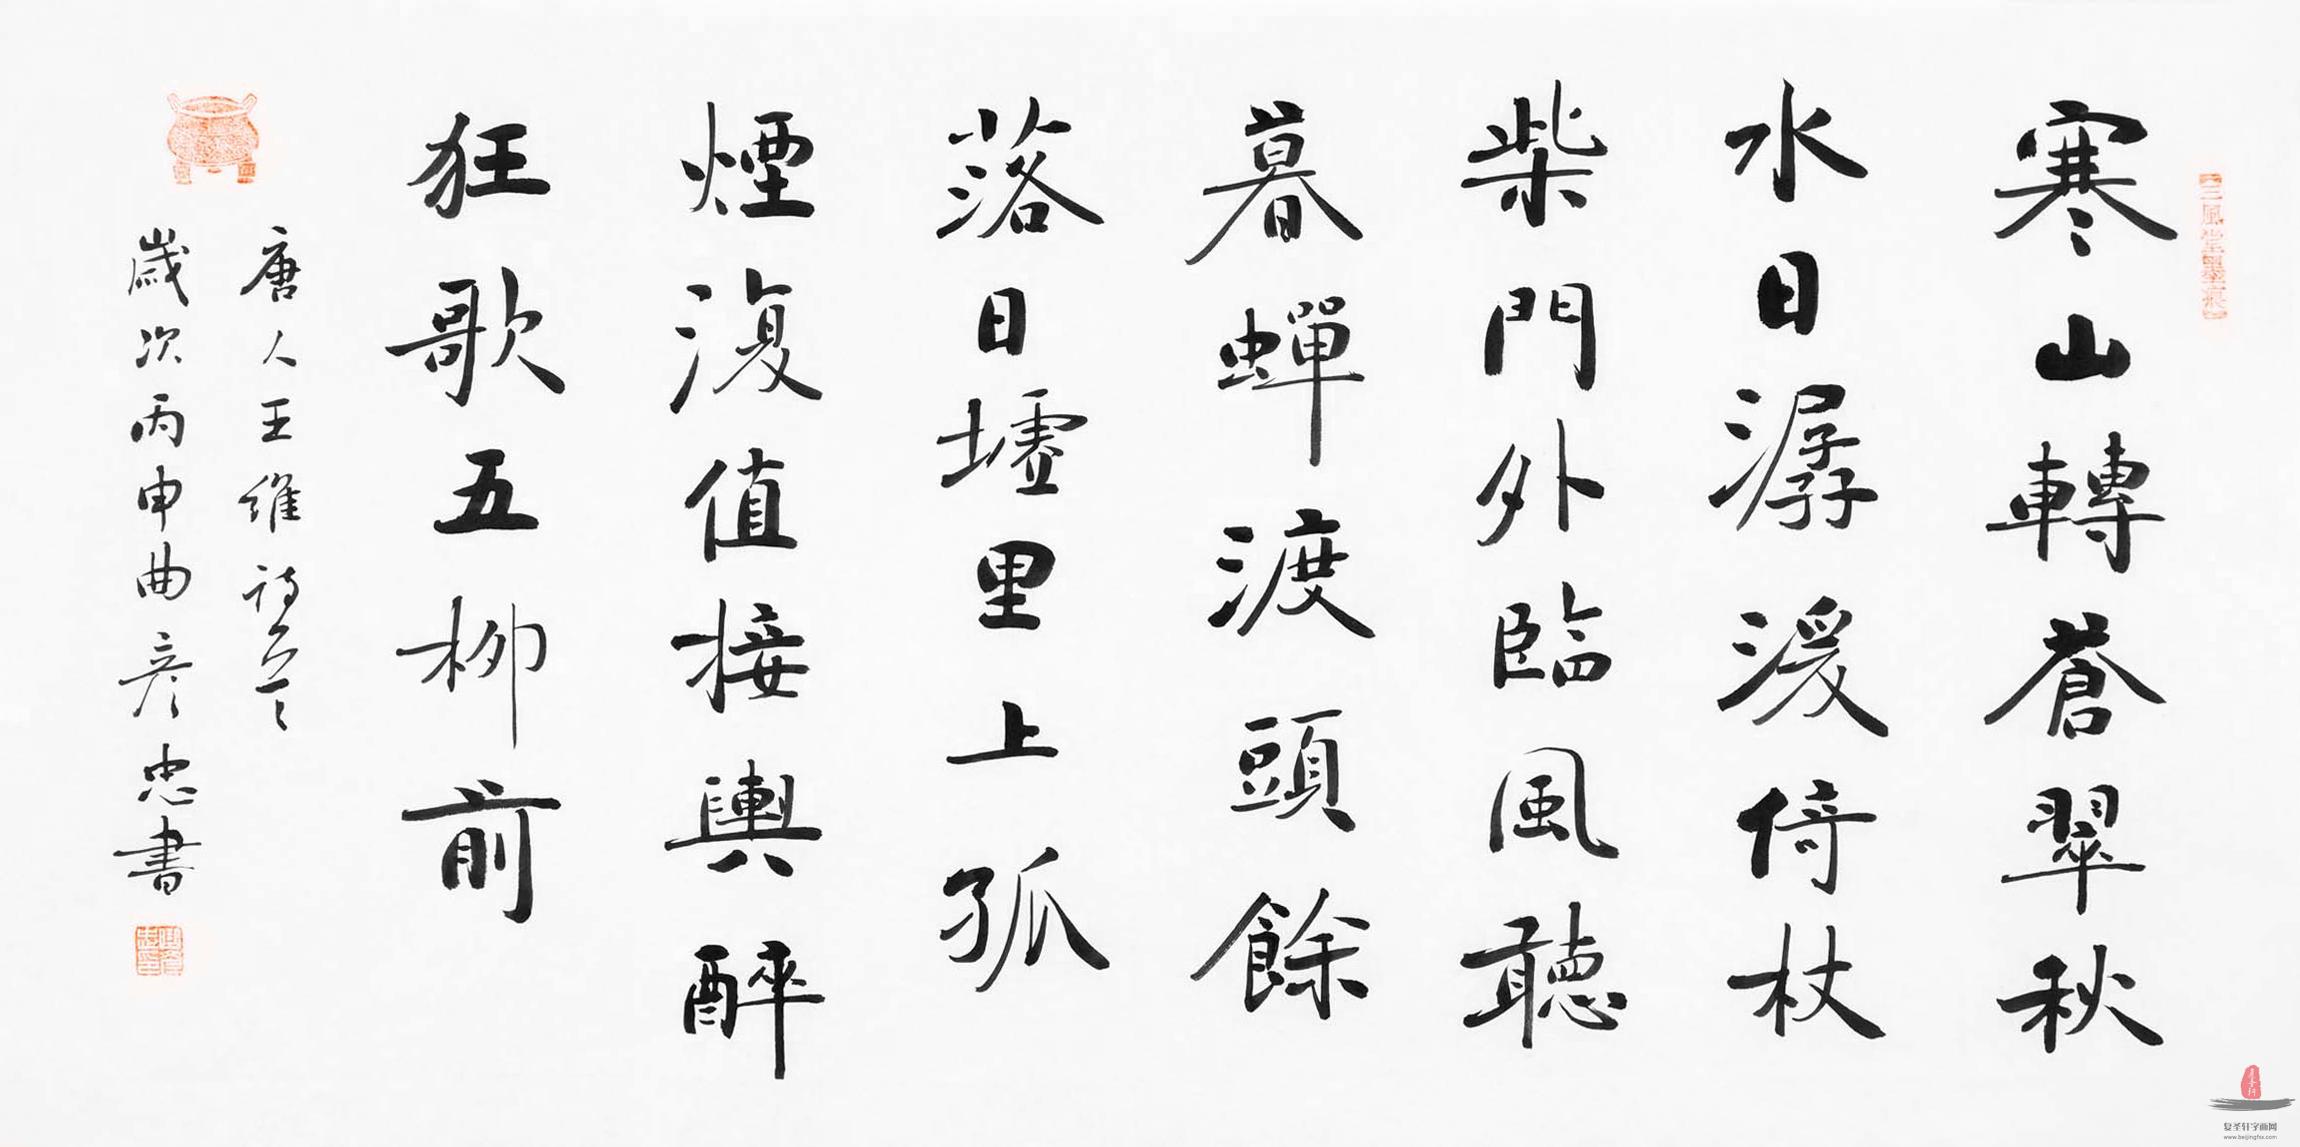 三風堂墨痕
寒山轉蒼翠秋
水日潺湲倚杖
柴門外臨風聽
暮蟬渡頭餘
落日墟里上孤
煙復值接輿醉
狂歌五柳前
唐人王維詩
歲次丙申曲彥忠書
复圣轩字画网
www.beijingfsx.com